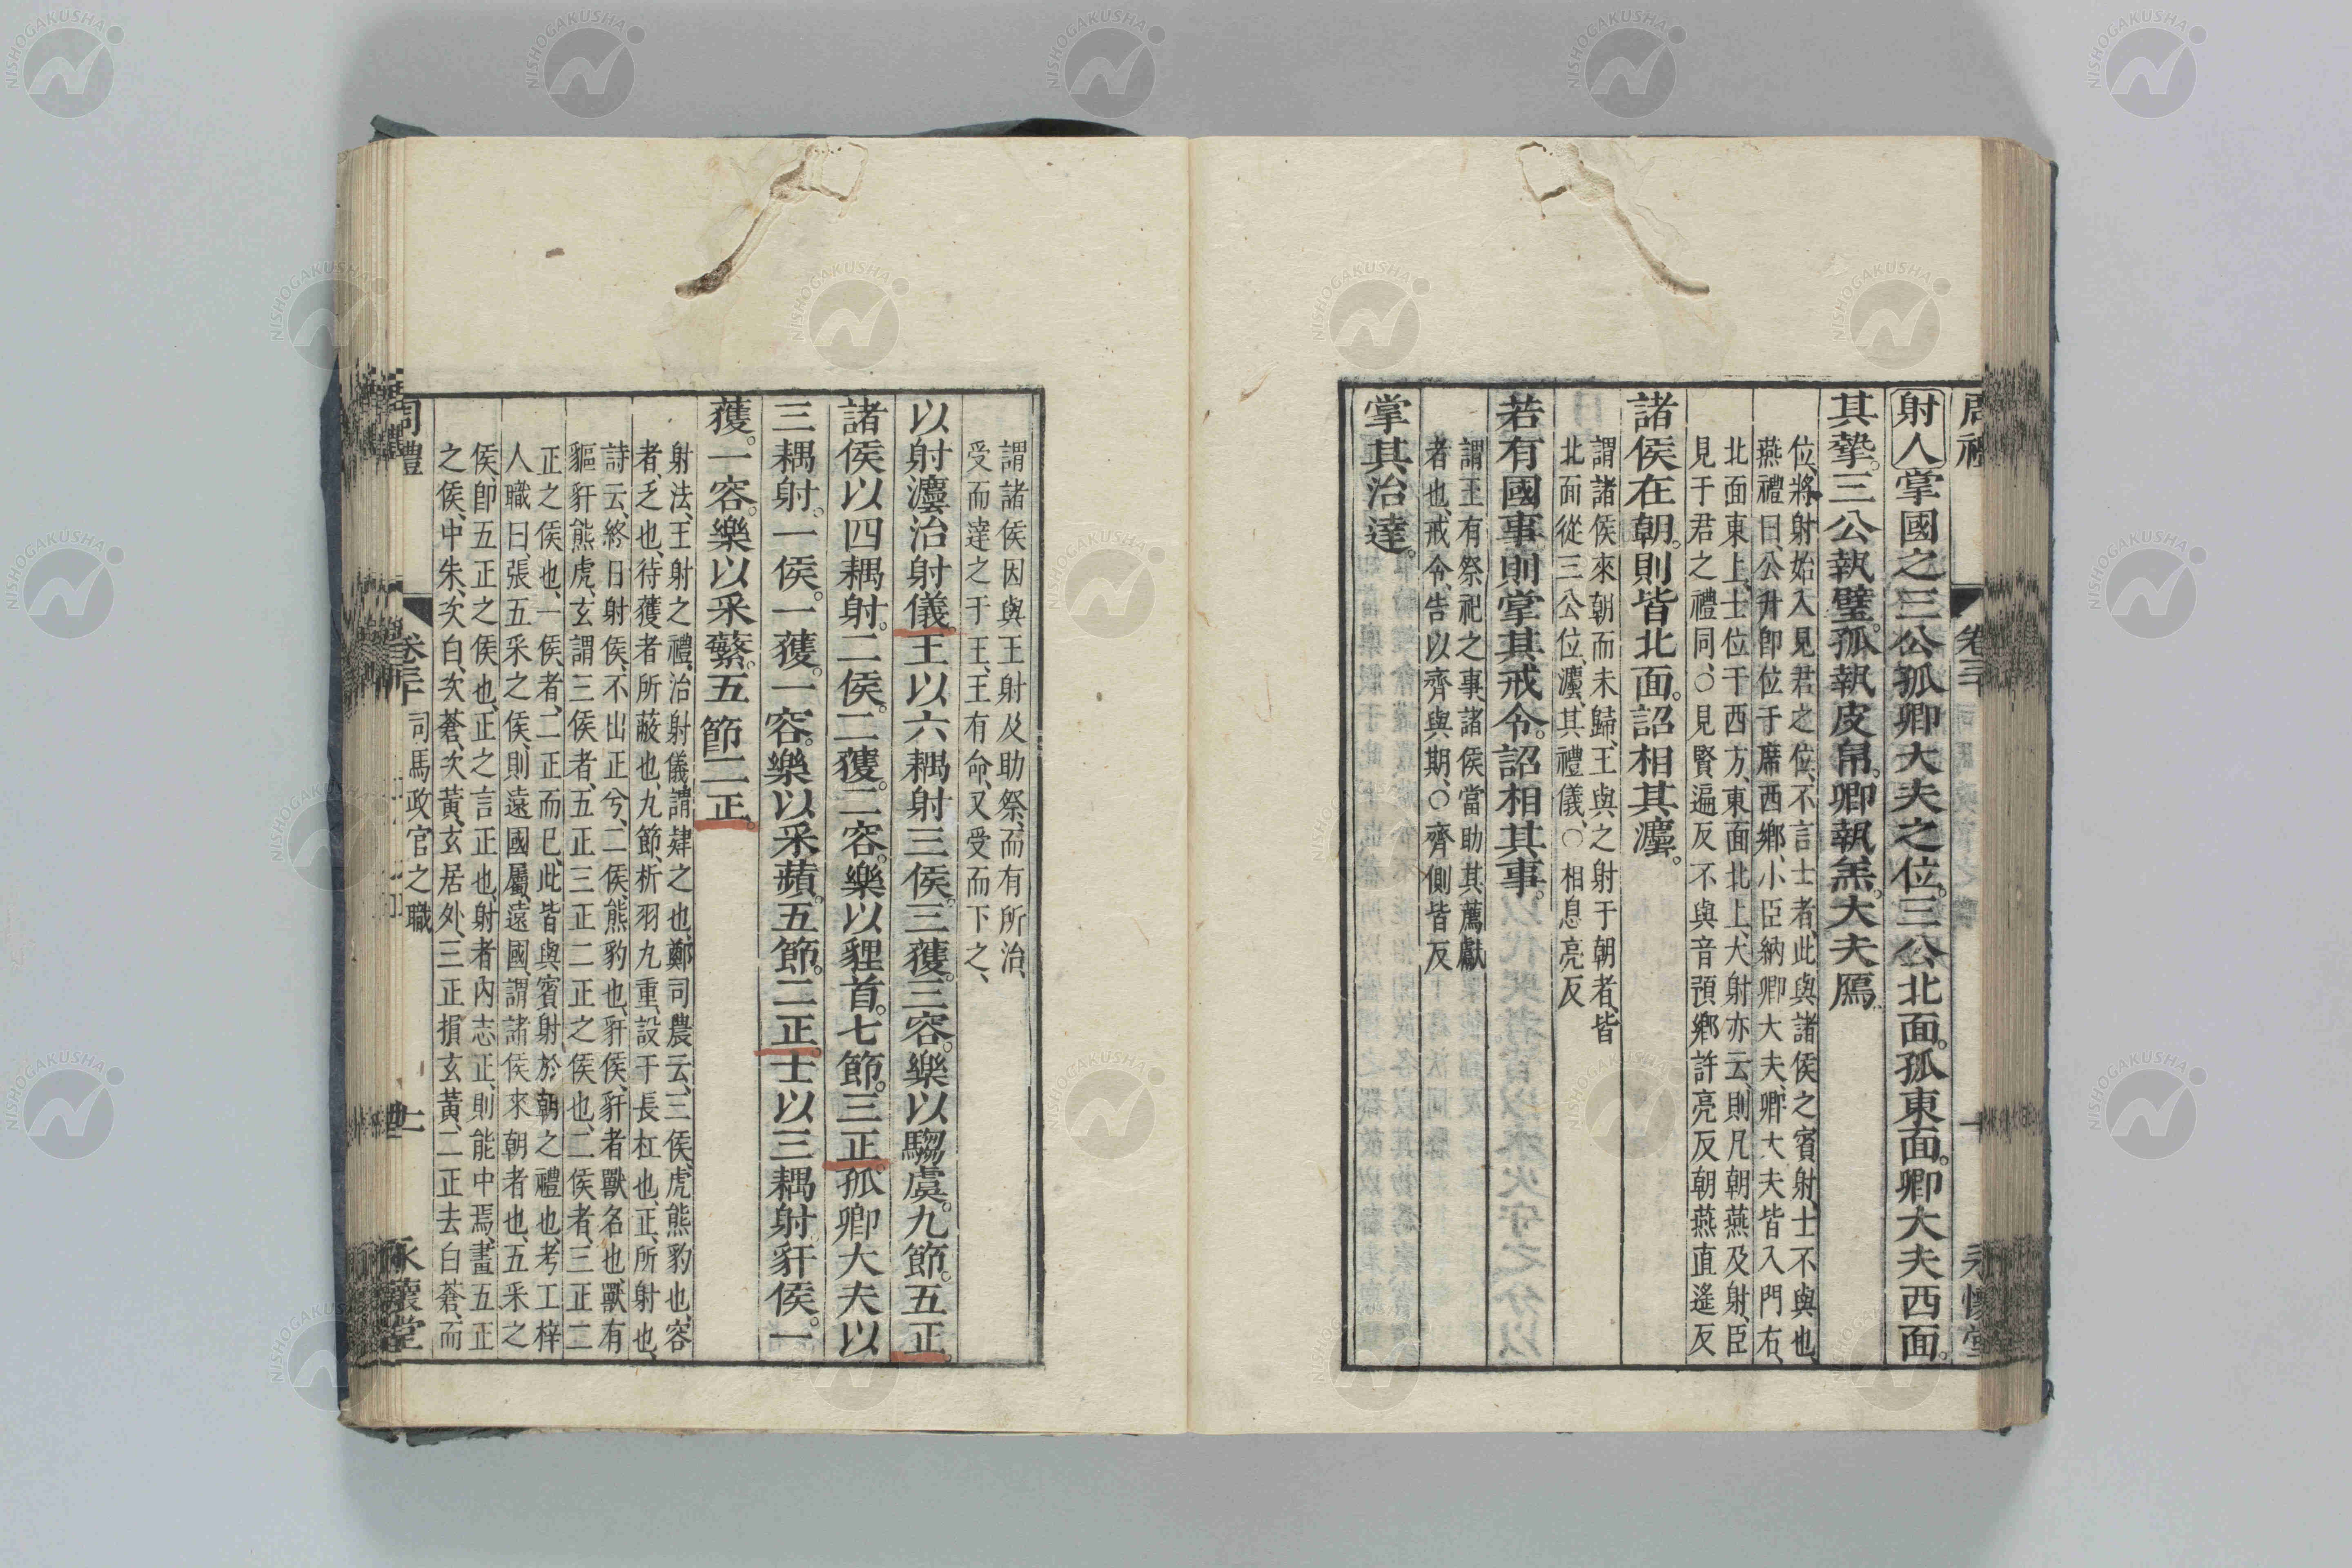 射人掌國之三公孤卿大夫之位。三公北面。孤東面。卿大夫西面。
其摯。三公執璧。孤執皮帛。卿執羔。大夫鴈
位、將射始入見君之位、不言士者、此與諸侯之賓射、士不與也、
燕禮曰、公升卽位于席西鄉、小臣納卿大夫、卿大夫皆入門右、
北面東上、士位于西方、東面北上、大射亦云、則凡朝燕及射、臣
見于君之禮同、○見賢遍反不與音預鄉許亮反朝燕直遙反
諸侯在朝。則皆北面。詔相其灋。
謂諸侯來朝而未歸、王與之射于朝者、皆
北面從三公位、灋、其禮儀、○相息亮反
若有國事則掌其戒令。詔相其事。
謂王有祭祀之事諸侯當助其薦獻
者也、戒令、告以齊與期、○齊側皆反
掌其治達。
謂諸侯因與王射及助祭、而有所治、
受而達之于王、王有命、又受而下之、
以射灋治射儀。王以六耦射三侯。三獲。三容。樂以騶虞。九節。五正。
諸侯以四耦射。二侯。二獲。二容。樂以貍首。七節。三正。孤卿大夫以
三耦射。一侯。一獲。一容。樂以采蘋。五節。二正。士以三耦射豻侯。一
獲。一容。樂以采蘩。五節二正。
射法、王射之禮、治射儀、謂肄之也、鄭司農云、三侯、虎熊豹也、容
者、乏也、待獲者所蔽也、九節、析羽九重、設于長杠也、正、所射也、
詩云、終日射侯、不出正兮、二侯、熊豹也、豻侯、豻者獸名也、獸有
貙豻熊虎、玄謂三侯者、五正三正二正之侯也、二侯者、三正二
正之侯也、一侯者、二正而已、此皆與賓射於朝之禮也、考工梓
人職曰、張五采之侯、則遠國屬、遠國、謂諸侯來朝者也、五采之
侯、卽五正之侯也、正之言正也、射者內志正、則能中焉、畫五正
之侯、中朱、次白、次蒼、次黃、玄居外、三正損玄黃、二正去白蒼、而
周禮
卷三十
司馬政官之職
永懷堂
NISHOGAKUSHA